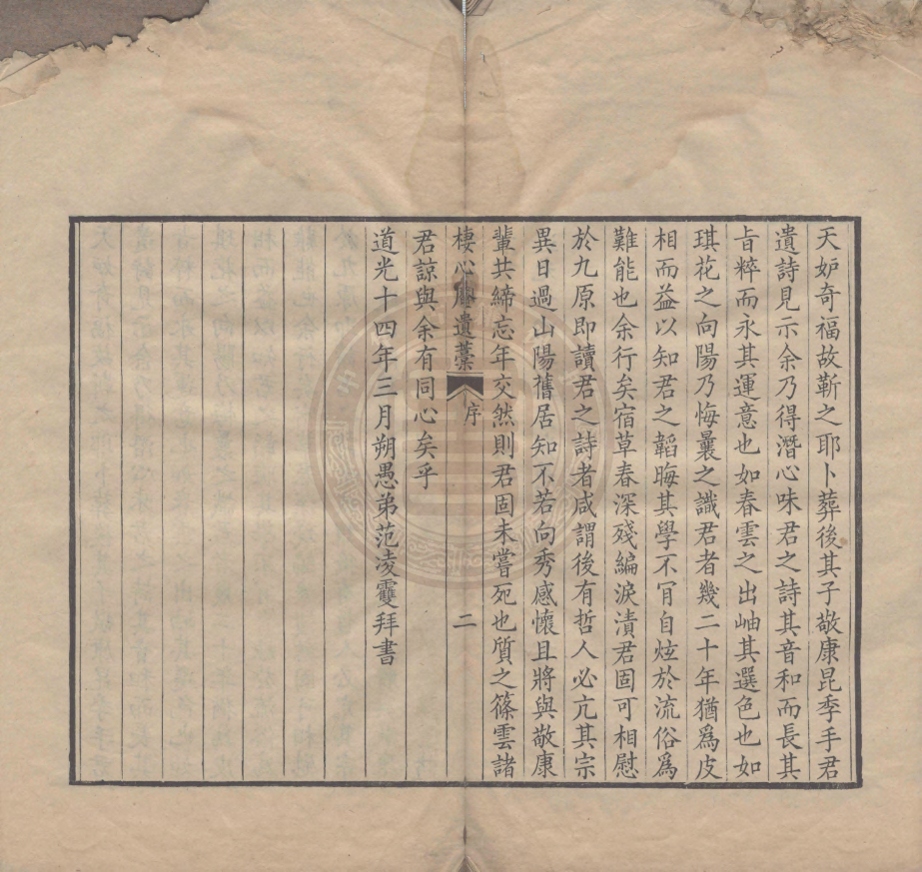 天妒奇福故靳之耶卜葬後其子敬康昆季手君
遺詩見示余乃得潛心味君之詩其音和而長其
旨粹而永其運意也如春雲之出岫其選色也如
琪花之向陽乃悔曩之識君者幾二十年猶爲皮
相而益以知君之韜晦其學不肎自炫於流俗爲
難能也余行矣宿草春深殘編淚漬君固可相慰
於九原即讀君之詩者咸謂後有哲人必亢其宗
異日過山陽舊居知不若向秀感懷且將與敬康
輩共締忘年交然則君固未嘗死也質之篠雲諸
棲心遺藁 序 二
君諒與余有同心矣乎
道光十四年三月朔愚弟范凌䨇拜書